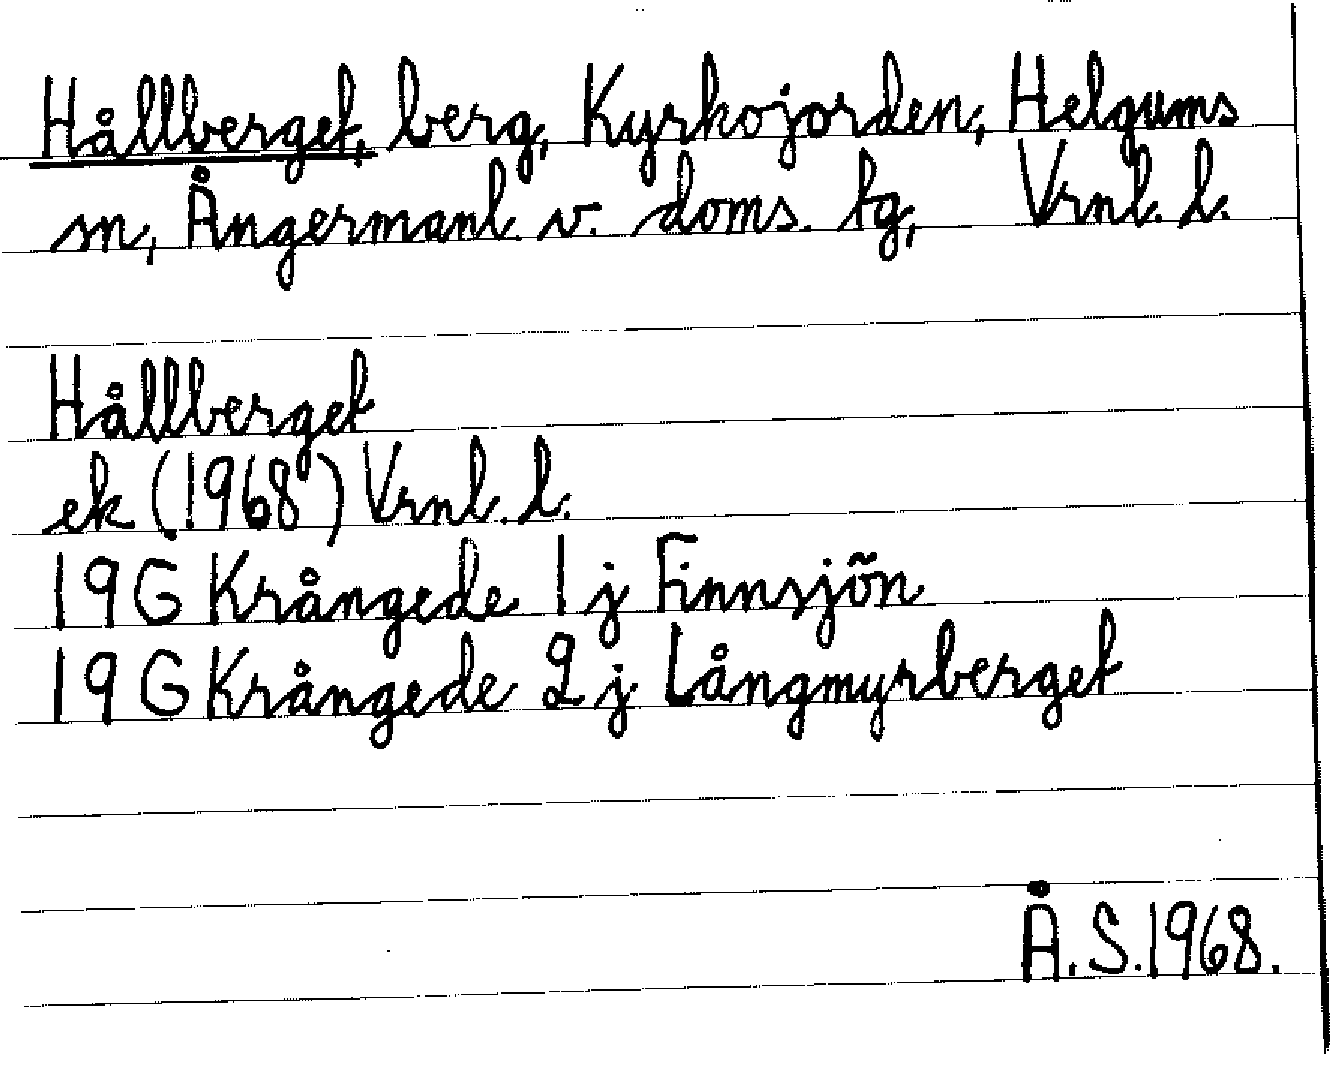 Hållberget, berg, Kyrkojorden, Helgums
sn, Ångermanl. v. doms. tg, Vrnl. l.
Hållberget
ek (1968) Vrnl. l.
19G Krångede 1 j Finnsjön
19G Krångede 2 j Långmyrberget
Å. S. 1968.